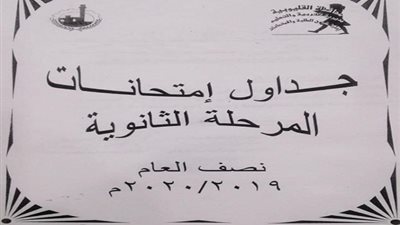 محافظة القليوبية
جداول إمتحانات
المرحلة الثانوية
نصف العام
٢٠٢٠/٢٠١٩م